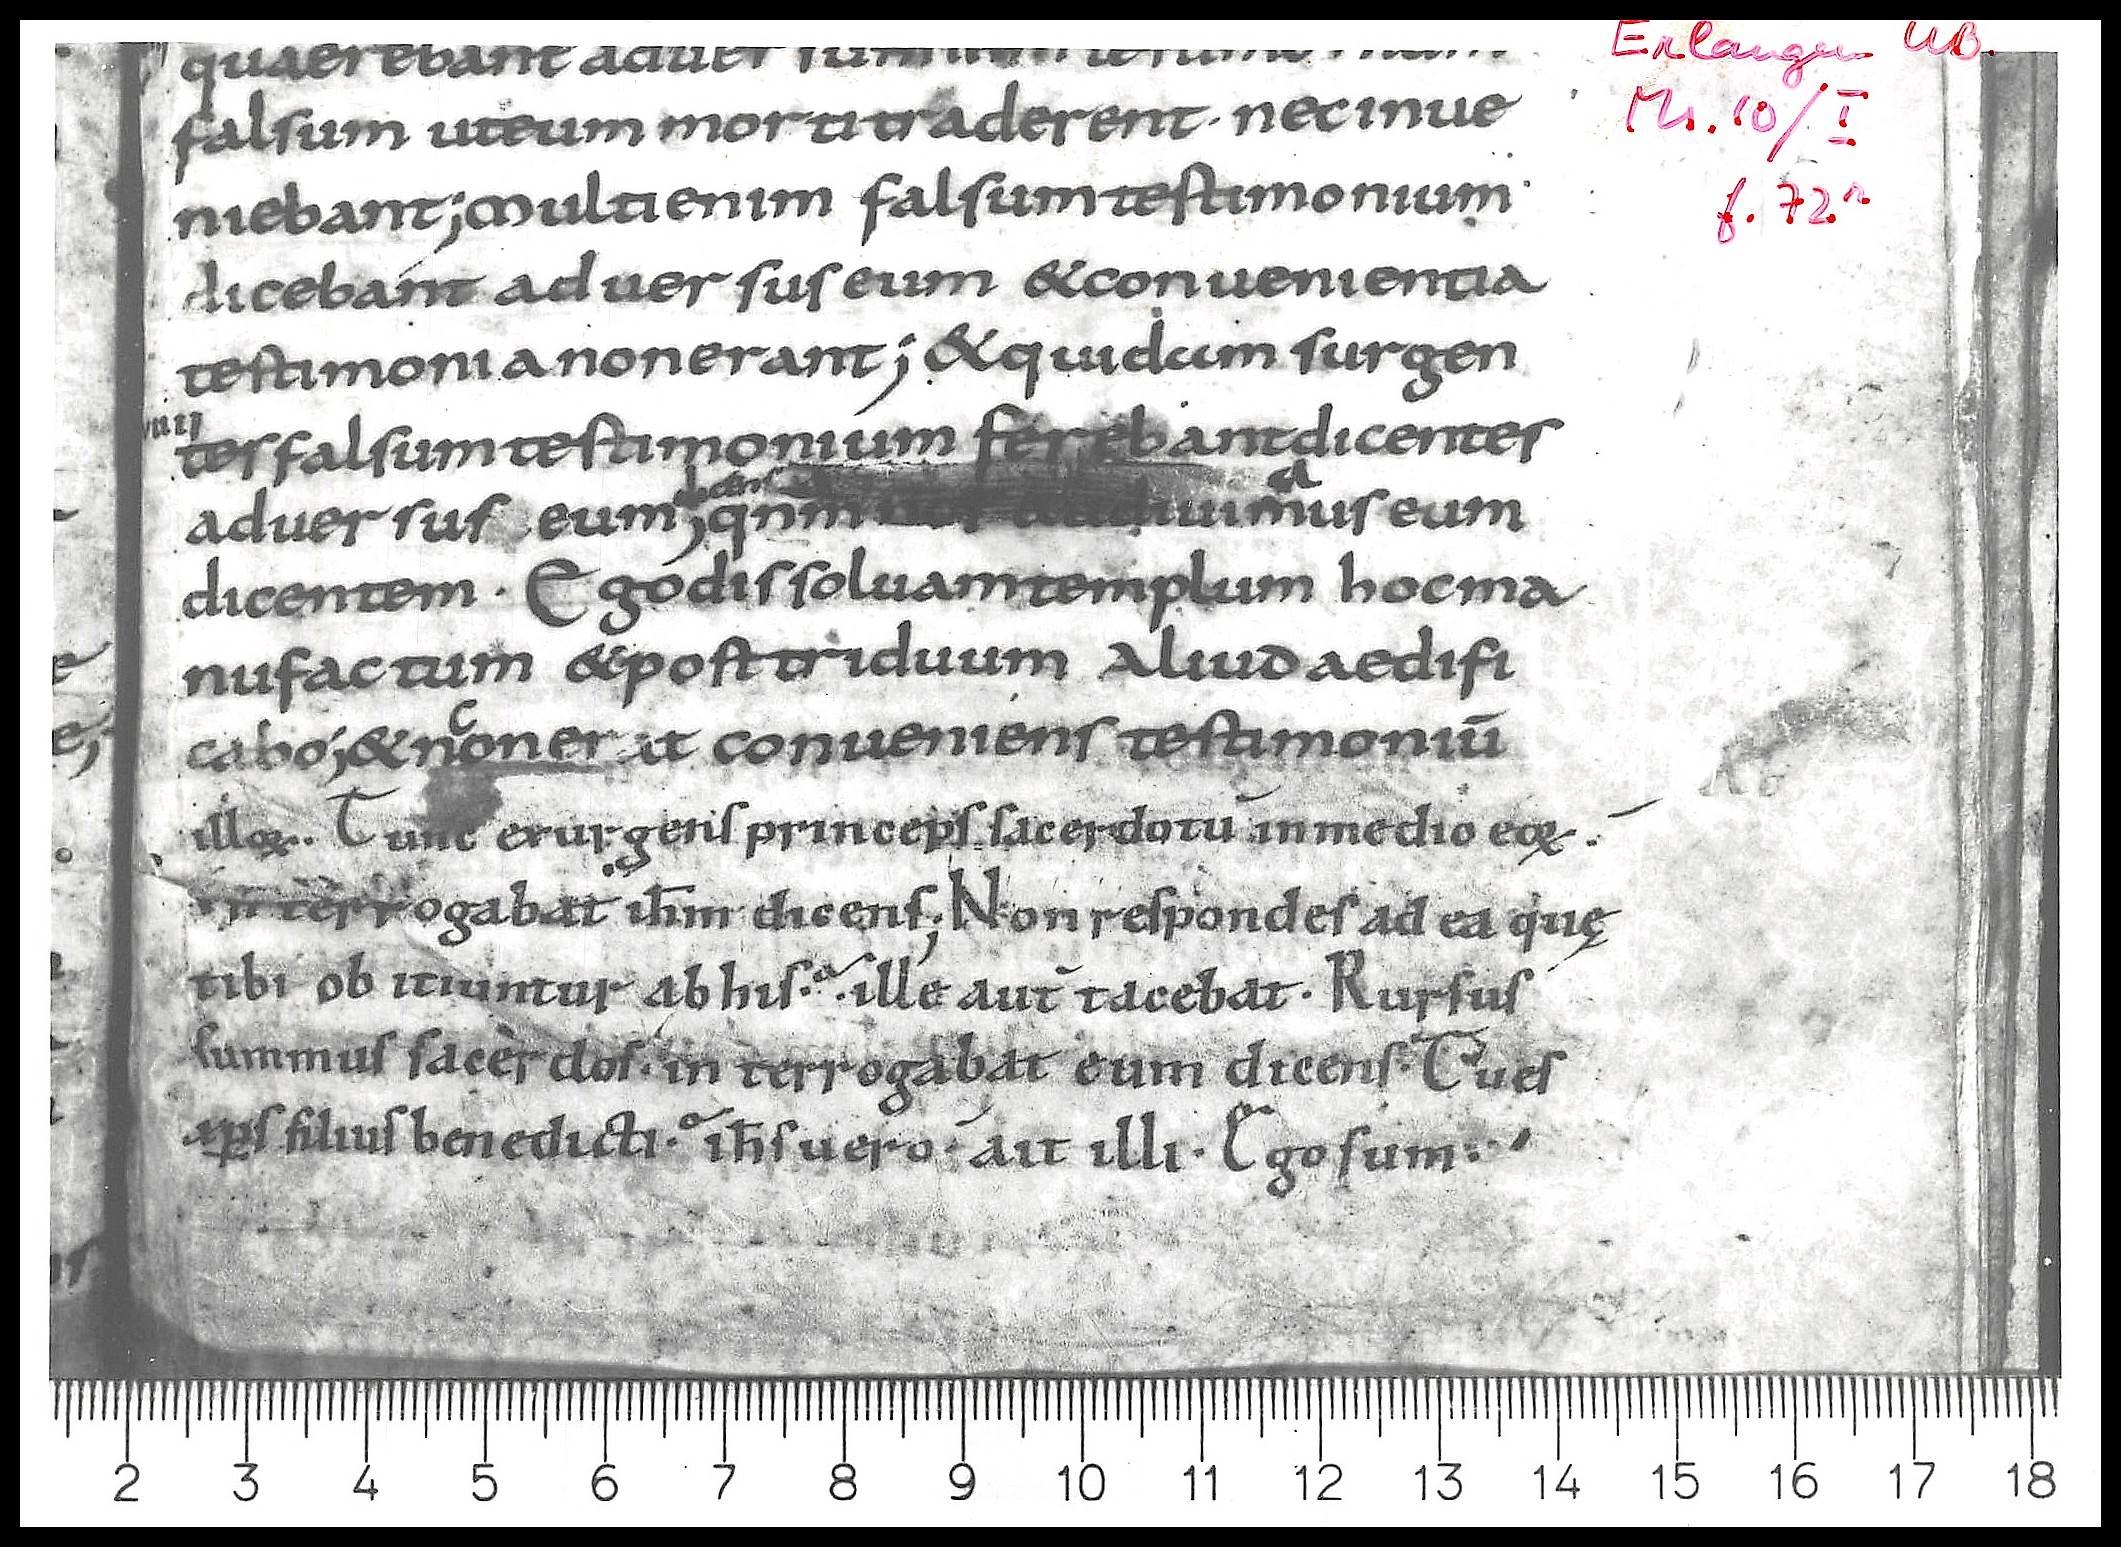 Erlangen UB.
Ms. 10/I
f. 72r
quaerebant aduer
falsum uteum morti traderent. nec inue
niebant; Multi enim falsum testimonium
dicebant aduersus eum & conuenientia
testimonia non erant; & quidam surgen
uiii
tes falsum testimonium ferebant dicentes
aduersus eum; qnm mus eum
a
dicentem. Ego dissoluam templum hoc ma
nufactum & post triduum aliud aedifi
cabo; & non erat conueniens testimoniū
c
illoꝝ. Tunc exurgens princeps sacerdotū in medio eoꝝ.
interrogabat ih̄m dicens; Non respondes ad ea quę
tibi obitiuntur ab his. ille aut̄ tacebat. Rursus
summus sacerdos. interrogabat eum dicens. Tu es
xp̄s filius benedicti. ih̄s uero ait illi. Ego sum.
2 3 4 5 6 7 8 9 10 11 12 13 14 15 16 17 18